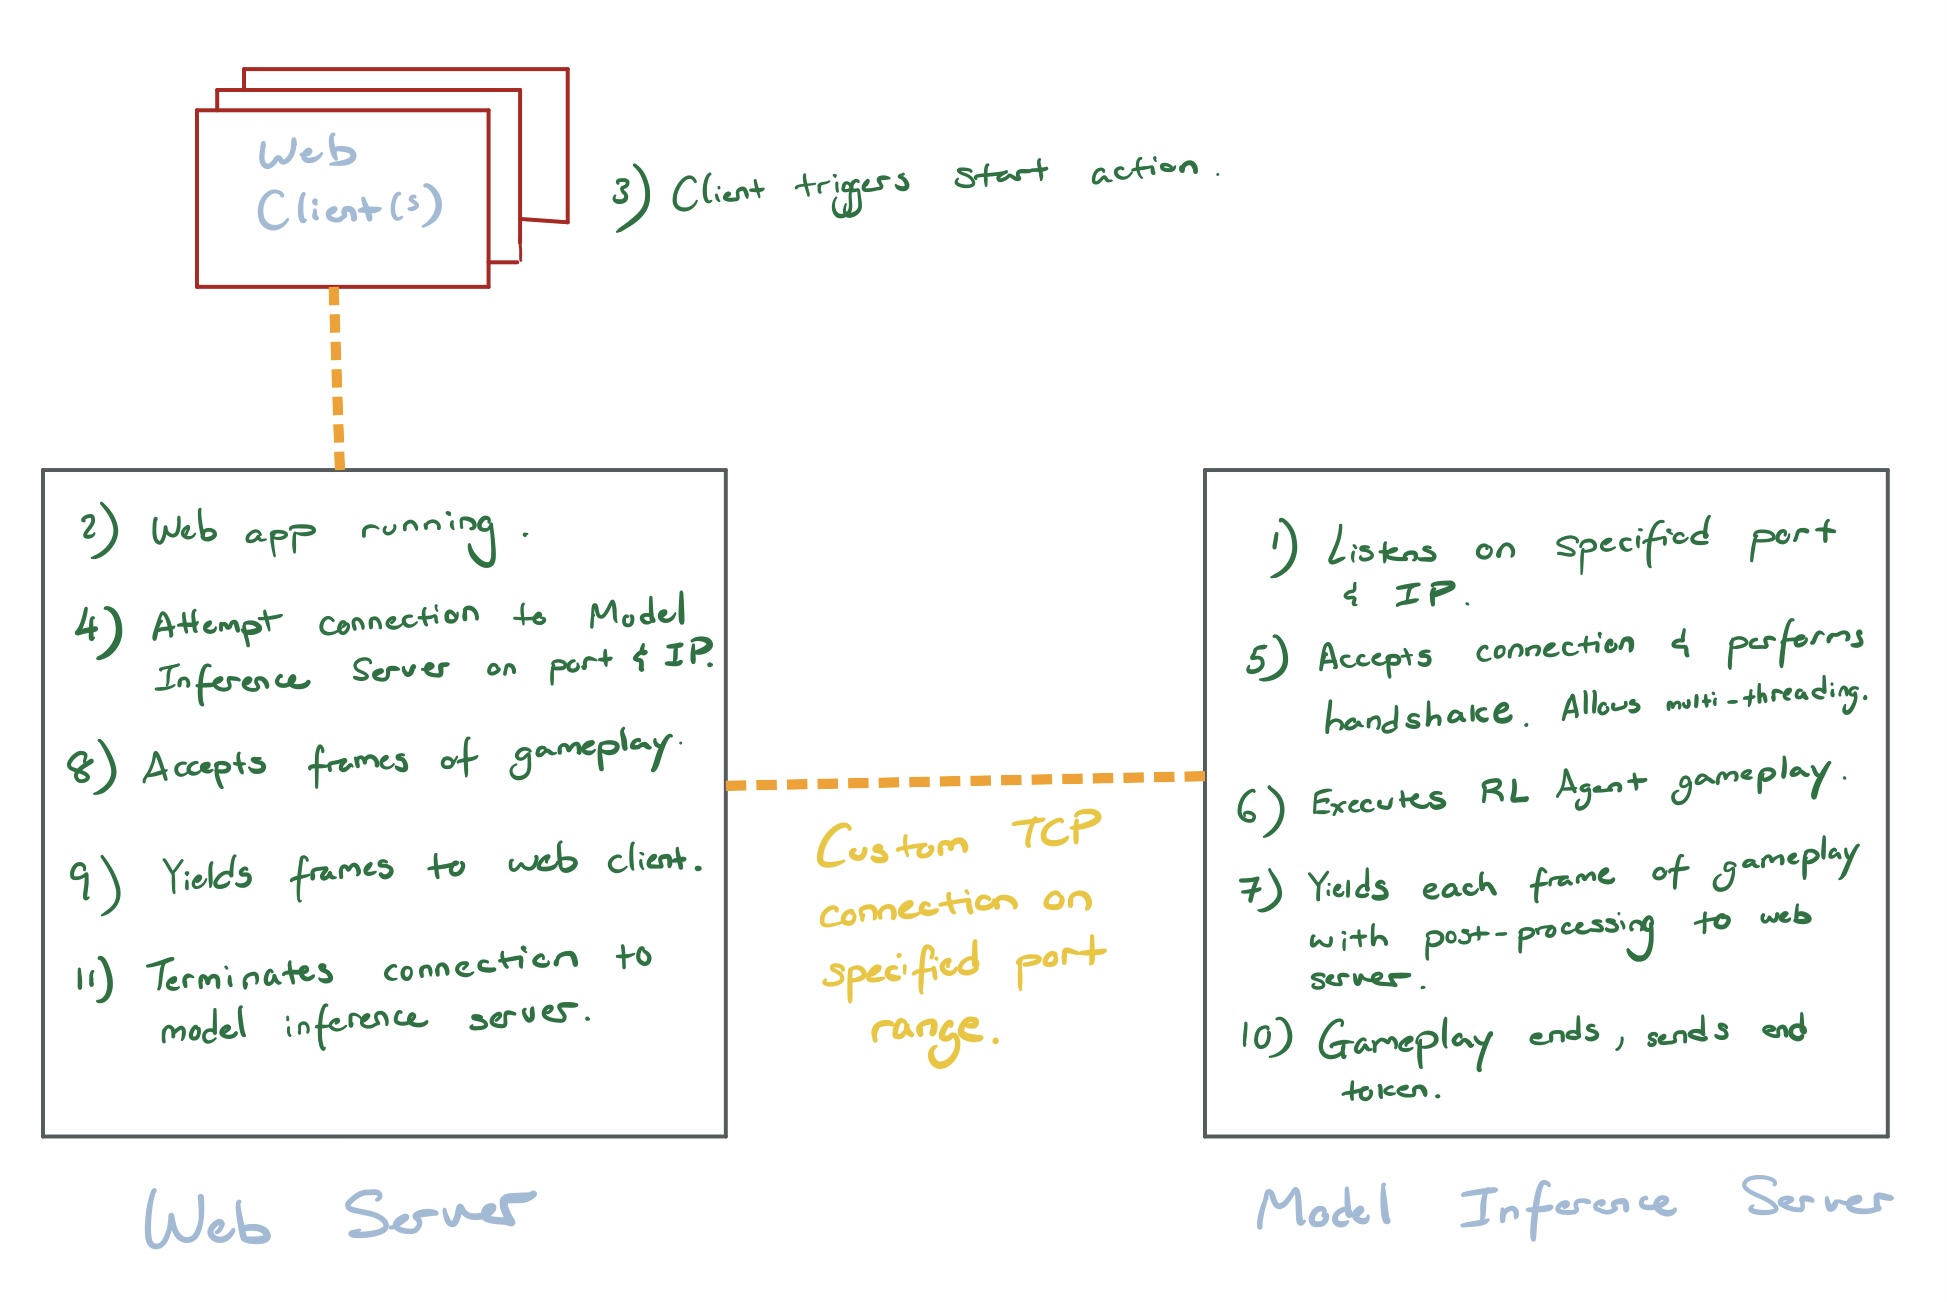 Web
Client(s)
3) Client triggers start action.
2) Web app running.
4) Attempt connection to Model
Inference Server on port & IP.
8) Accepts frames of gameplay.
9) Yields frames to web client.
11) Terminates connection to
model inference server.
Web Server
Custom TCP
connection on
specified port
range.
1) Listens on specified port
& IP.
5) Accepts connection & performs
handshake. Allows multi-threading.
6) Executes RL Agent gameplay.
7) Yields each frame of gameplay
with post-processing to web
server.
10) Gameplay ends, sends end
token.
Model Inference Server